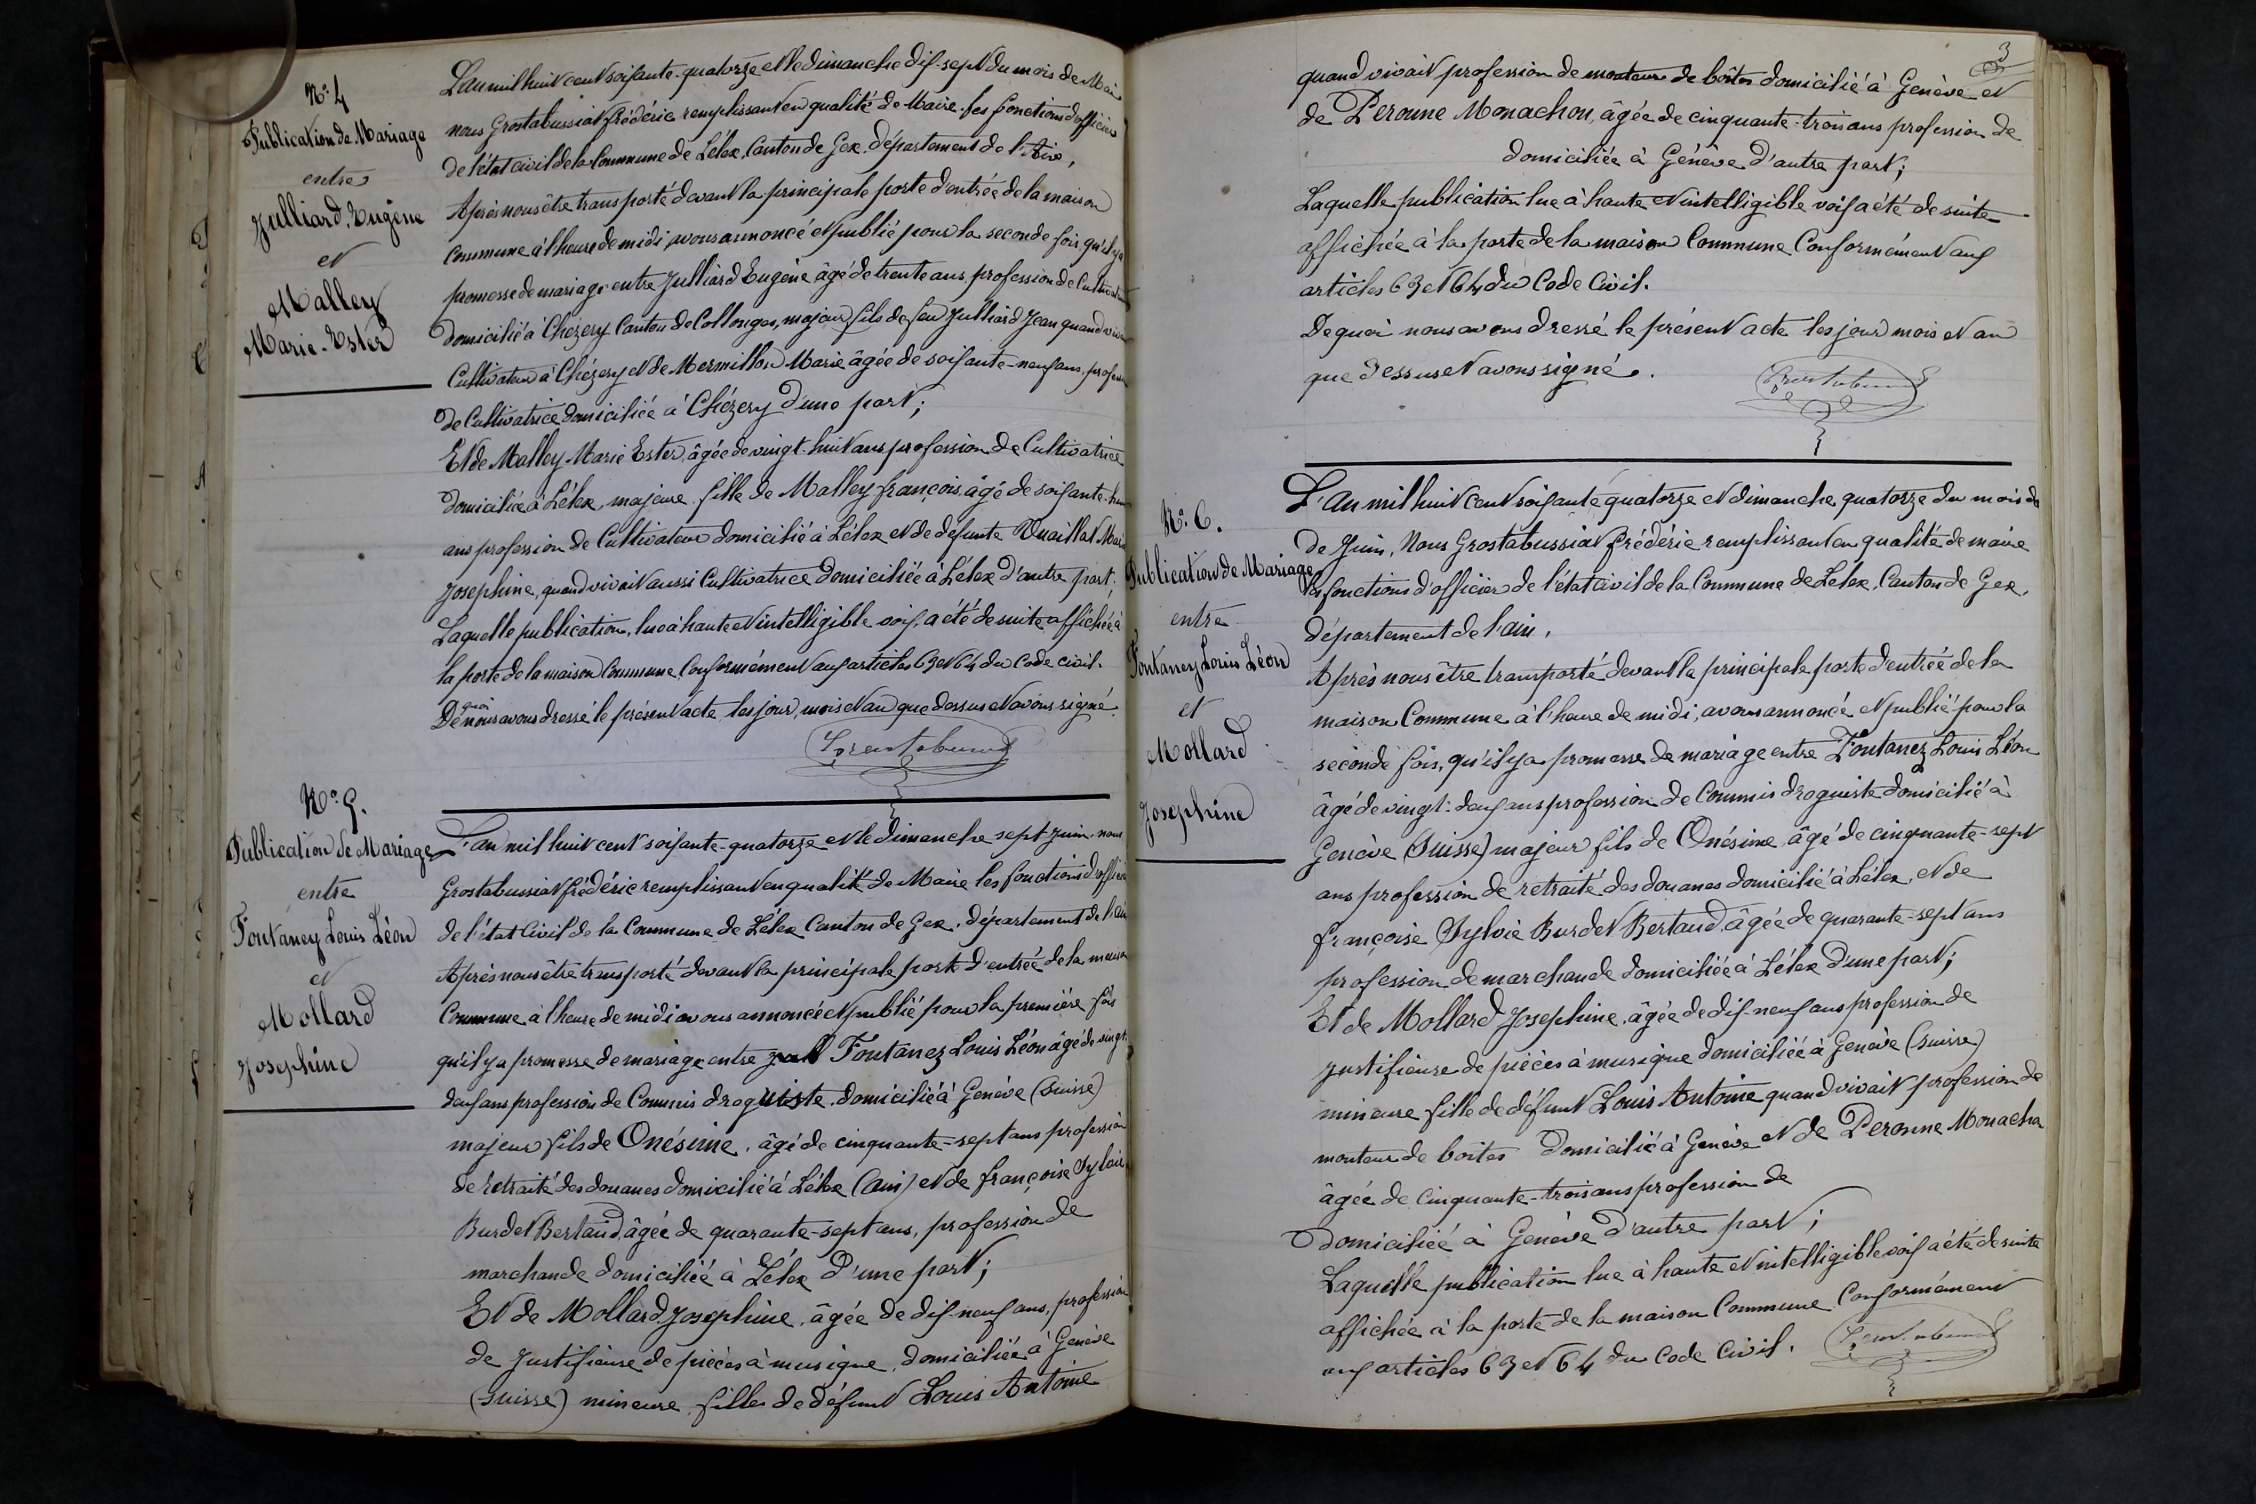 N° 4
Publication de Mariage
entre
Julliard Eugène
et
Malley
Marie-Ester
L'an mil huit cent soixante-quatorze et le dimanche dix-sept du mois de Mai
nous Grostabussiat frédéric remplissant en qualité de Maire les fonctions d'officier
de l'état civil de la Commune de Lélex, Canton de Gex, département de l'Ain,
Après nous être transporté devant la principale porte d'entrée de la maison
Commune à l'heure de midi, avons annoncé et publié pour la seconde fois, qu'il y a
promesse de mariage entre Julliard Eugène âgé de trente ans, profession de Cultivateur
domicilié à Chézery Canton de Collonges, majeur fils de feu Julliard Jean quand vivait
Cultivateur à Chézery et de Mermillon Marie âgée de soixante-neuf ans, profession
de Cultivatrice domiciliée à Chézery d'une part;
Et de Malley Marie Ester, âgée de vingt-huit ans profession de Cultivatrice
domiciliée à Lélex, majeure fille de Malley françois, âgé de soixante-huit
ans profession de Cultivateur domicilié à Lélex et de défunte Vuaillat Marie
Josephine, quand vivait aussi Cultivatrice domiciliée à Lélex d'autre part;
Laquelle publication, lue à haute et intelligible voix, a été de suite affichée à
la porte de la maison Commune, Conformément aux articles 63 et 64 du Code civil.
De quoi nous avons dressé le présent acte les jour, mois et an que dessus et avons signé.
N° 5.
Publication de Mariage
entre
Fontaney Louis Léon
et
Mollard
Josephine
L'an mil huit cent soixante-quatorze et le dimanche sept Juin, nous
Grostabussiat frédéric remplissant en qualité de Maire les fonctions d'officier
de l'état Civil de la Commune de Lélex Canton de Gex, département de l'Ain
Après nous être transporté devant la principale porte d'entrée de la maison
Commune à l'heure de midi avons annoncé et publié pour la première fois
qu'il y a promesse de mariage entre Fontanez Louis Léon âgé de vingt-
deux ans profession de Commis droguiste domicilié à Genève (Suisse)
majeur fils de Onésime, âgé de cinquante-sept ans profession
de retraité des douanes domicilié à Lélex (Ain) et de françoise Sylvie
Burdet Bertaud, âgée de quarante-sept ans, profession de
marchande domiciliée à Lélex d'une part;
Et de Mollard Josephine, âgée de dix-neuf ans, profession
de Justifieuse de pièces à musique, domiciliée à Genève
(Suisse) mineure fille de défunt Louis Antoine
3
quand vivait profession de monteur de boîtes domicilié à Genève et
de Peronne Monachon, âgée de cinquante-trois ans profession de
domiciliée à Génève d'autre part;
Laquelle publication lue à haute et intelligible voix a été de suite
affichée à la porte de la maison Commune Conformément aux
articles 63 et 64 du Code Civil.
De quoi nous avons dressé le présent acte les jour mois et an
que dessus et avons signé.
N° 6.
Publication de Mariage
entre
Fontaney Louis Léon
et
Mollard
Josephine
L'an mil huit cent soixante quatorze et dimanche quatorze du mois de
de Juin, Nous Grostabussiat frédéric remplissant en qualité de maire
les fonctions d'officier de l'état civil de la Commune de Lélex, Canton de Gex,
département de l'ain,
Après nous être transporté devant la principale porte d'entrée de la
maison Commune à l'heure de midi, avons annoncé et publié pour la
seconde fois, qu'il y a promesse de mariage entre Fontanez Louis Léon
âgé de vingt-deux ans profession de Commis droguiste domicilié à
Genève (Suisse) majeur fils de Onésime âgé de cinquante-sept
ans profession de retraité des douanes domicilié à Lélex, et de
françoise Sylvie Burdet Bertaud, âgée de quarante-sept ans
profession de marchande domiciliée à Lélex d'une part;
Et de Mollard Josephine, âgée de dix-neuf ans profession de
justifieuse de pièces à musique domiciliée à Genève (Suisse)
mineure fille de défunt Louis Antoine quand vivait profession de
monteur de boîtes domicilié à Genève et de Peronne Monacho
âgée de cinquante-trois ans profession de
domiciliée à Genève d'autre part;
Laquelle publication lue à haute et intelligible voix a été de suite
affichée à la porte de la maison Commune Conformément
aux articles 63 et 64 du Code Civil.